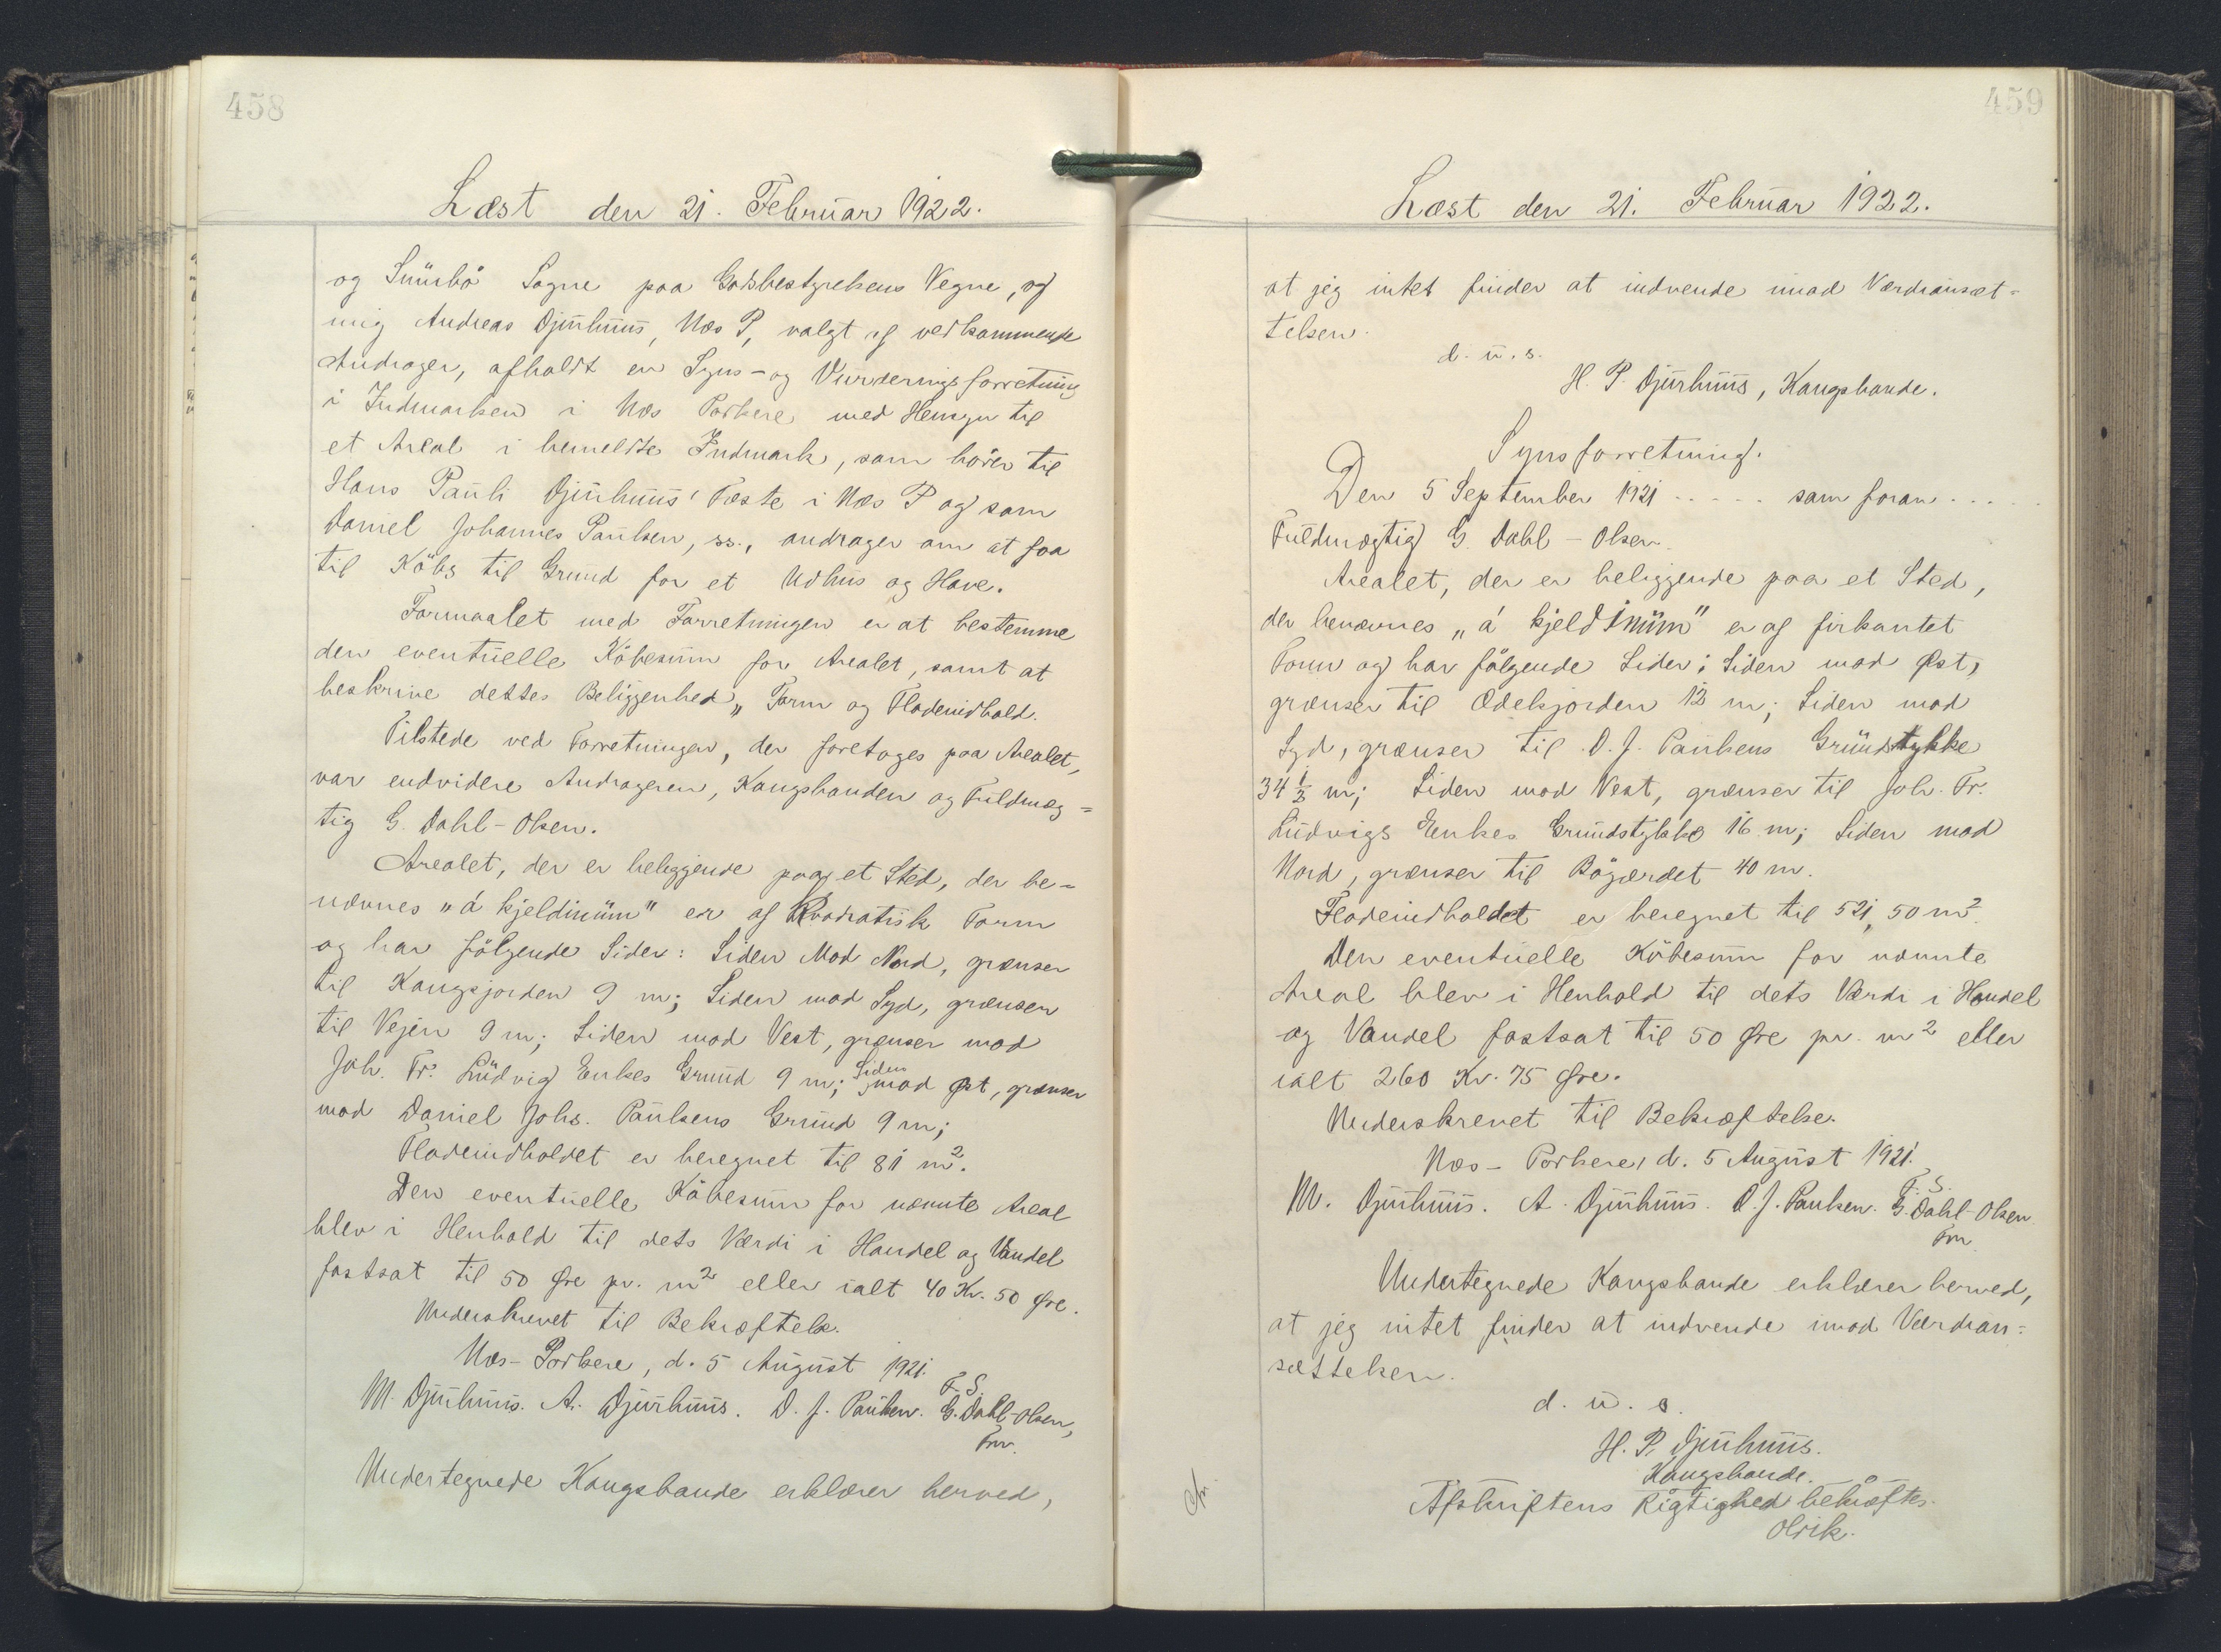 458
Læst den 21. Februar 1922.
og Sumbö Sogne paa Godsbestyrelsens Vegne, og
mig Andreas Djurhuus, Næs P, valgt af vedkommende
Andrager, afholdt en Syns- og Vurderingsforretning
i Indmarken i Næs Porkere med Hensyn til
et Areal i bemeldte Indmark, som hører til
Hans Pauli Djurhuus' Fæste i Næs P og som
Daniel Johannes Paulsen, ss., andrager om at faa
til Köbs til Grund for et Udhus og Have.
Formaalet med Forretningen er at bestemme
den eventuelle Köbesum for Arealet, samt at
beskrive dettes Beliggenhed, Form og Fladeindhold.
Tilstede ved Forretningen, der foretoges paa Arealet,
var endvidere Andrageren, Kongsbonden og Fuldmæg=
tig G. Dahl-Olsen.
Arealet, der er beliggende paa et Sted, der be-
nævnes "á kjeldinum" er af Kvadratisk Form
og har fölgende Sider: Siden Mod Nord, grænser
til Kongsjorden 9 m; Siden mod Syd, grænser
til Vejen 9 m; Siden mod Vest, grænser mod
Joh. Fr. Ludvig Enkes Grund 9 m; Siden mod Øst, grænser
mod Daniel Johs. Paulsens Grund 9 m;
Fladeindholdet er beregnet til 81 m².
Den eventuelle Köbesum for nævnte Areal
blev i Henhold til dets Værdi i Handel og Vandel
fastsat til 50 Øre pr. m² eller ialt 40 Kr. 50 Øre.
Underskrevet til Bekræftelse.
Næs-Porkere, d. 5 August 1921.
M. Djurhuus. A. Djurhuus. D. J. Paulsen. G. Dahl-Olsen,
F. S.
Fm.
Undertegnede Kongsbonde erklærer herved,
459
Læst den 21. Februar 1922.
at jeg intet finder at indvende imod Værdiansæt=
telsen.
d. u. s.
H. P. Djurhuus, Kongsbonde.
Synsforretning.
Den 5 September 1921 ..... som foran ...
Fuldmægtig G. Dahl-Olsen.
Arealet, der er beliggende paa et Sted,
der benævnes "á kjeldinum" er af firkantet
Form og har fölgende Sider: Siden mod Øst,
grænser til Odelsjorden 12 m; Siden mod
Syd, grænser til D. J. Paulsens Grundstykke
34 1/2 m; Siden mod Vest, grænser til Joh. Fr.
Ludvigs Enkes Grundstykke 16 m; Siden mod
Nord, grænser til Bögærdet 40 m.
Fladeindholdet er beregnet til 521,50 m².
Den eventuelle Köbesum for nævnte
Areal blev i Henhold til dets Værdi i Handel
og Vandel fastsat til 50 Øre pr. m² eller
ialt 260 Kr. 75 Øre.
Underskrevet til Bekræftelse.
Næs-Porkere, d. 5 August 1921.
M. Djurhuus. A. Djurhuus. D. J. Paulsen. G. Dahl-Olsen.
F. S.
Fm.
Undertegnede Kongsbonde erklærer herved,
at jeg intet finder at indvende imod Værdian=
sættelsen.
d. u. s.
H. P. Djurhuus.
Kongsbonde.
Afskriftens Rigtighed bekræftes.
Olrik.